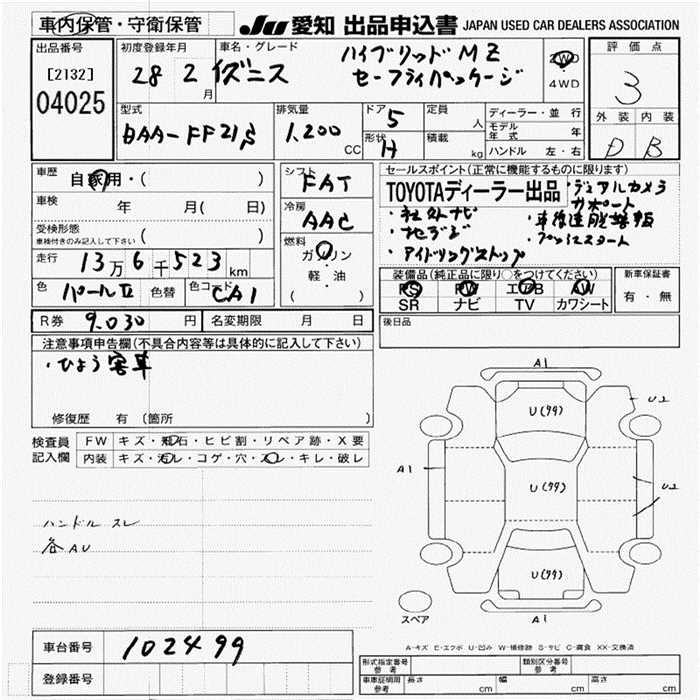 車内保管・守衛保管
JU 愛知 出品申込書 JAPAN USED CAR DEALERS ASSOCIATION
出品番号
[2132]
04025
初度登録年月
28 2月
車名・グレード
イグニス
ハイブリッドMZ
セーフティパッケージ
2WD
4WD
評価点
3
外装 内装
D B
型式
DAA-FF21S
排気量
1.200 CC
ドア 5
形状 H
定員 人
積載 kg
ディーラー・並行
モデル年式 年
ハンドル 左・右
車歴
自家用・( )
車検
年 月( 日)
受検形態
車検付きのみ記入して下さい ( )
走行
13万6千523km
色 パールII 色替 色コード CA1
シフト FAT
冷房 AAC
燃料
ガソリン
軽・油
( )
セールスポイント(正常に機能するものに限ります)
TOYOTAディーラー出品
・デュアルカメラ
サポート
・社外ナビ
・地デジ
・アイドリングストップ
・プッシュスタート
装備品(純正品に限り○をつけてください)
PS PW エアB AW
SR ナビ TV カワシート
新車保証書
有・無
R券 9,030 円 名変期限 月 日
後日品
注意事項申告欄(不具合内容等は具体的に記入して下さい)
・ひょう害車
修復歴 有 (箇所 )
検査員記入欄
FW キズ・飛石・ヒビ割・リペア跡・X要
内装 キズ・汚レ・コゲ・穴・スレ・キレ・破レ
ハンドル スレ
各AU
A1
U(97)
U2
A1
U(97)
U2
U(97)
スペア
A1
A-キズ E-エクボ U-凹み W-補修跡 S-サビ C-腐食 XX-交換済
車台番号
102499
登録番号
形式指定番号 参考
類別区分番号 参考
車庫証明用 参考
長さ cm 幅 cm 高さ cm